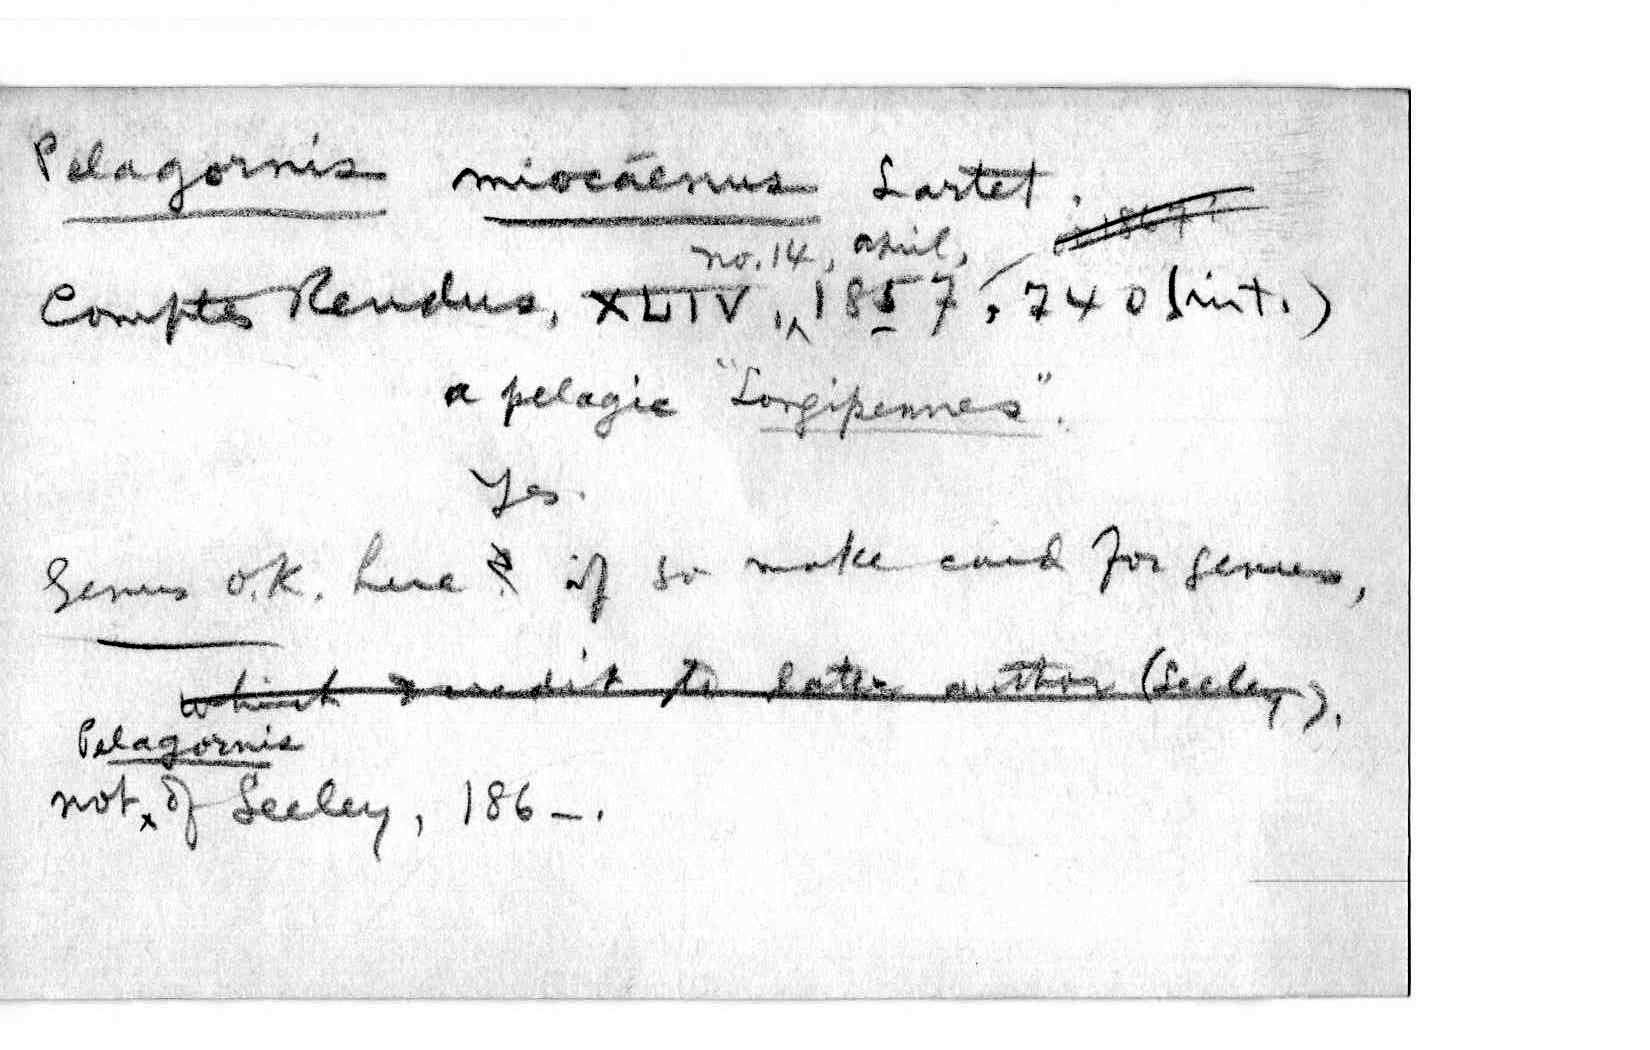 Pelagornis miocaenus Lartet.
no. 14, April,
Comptes Rendus, XLIV, 1857, 740 (int.)
a pelagic "Longipennes".
Yes.
Genus O.K. here ? if so make card for genus,
which credit to later author (Seeley).
Pelagornis
not of Seeley, 186_.